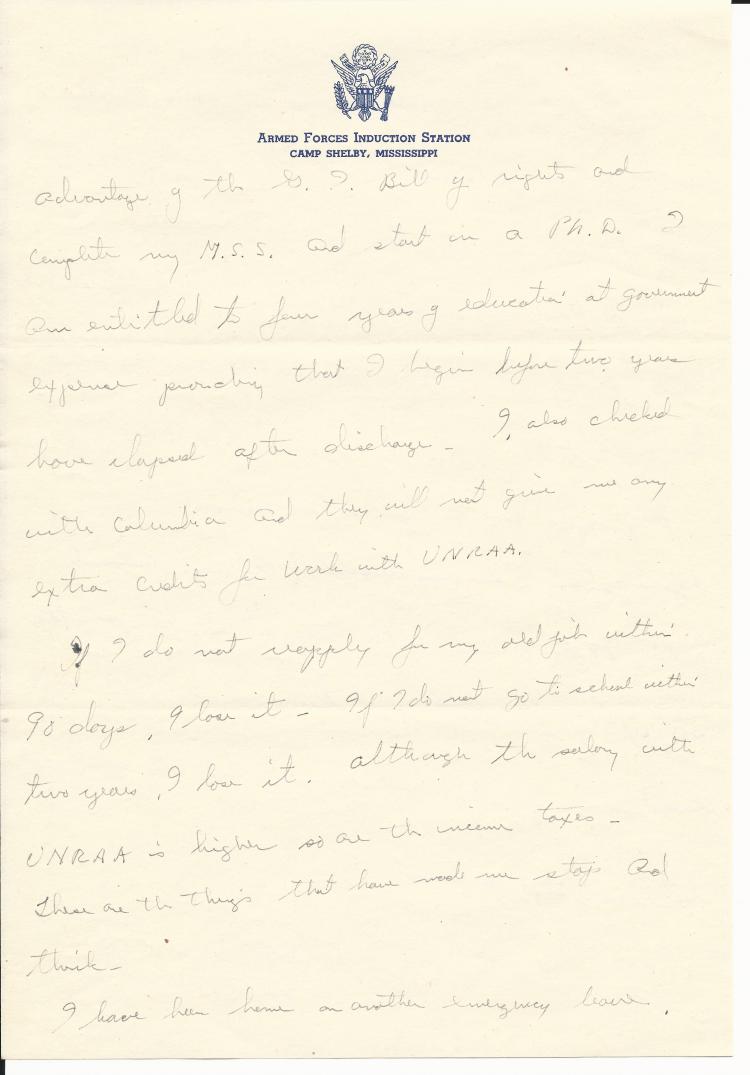 Armed Forces Induction Station
Camp Shelby, Mississippi
advantage of the G. I. Bill of rights and
complete my M.S.S. and start in a Ph. D. I
am entitled to four years of education at government
expense providing that I begin before two years
have elapsed after discharge - I, also checked
with Columbia and they will not give me any
extra credits for work with UNRAA.
If I do not reapply for my old job within
90 days, I lose it - If I do not go to school within
two years, I lose it. Although the salary with
UNRAA is higher so are the income taxes -
These are the things that have made me stop and
think -
I have been home on another emergency leave.